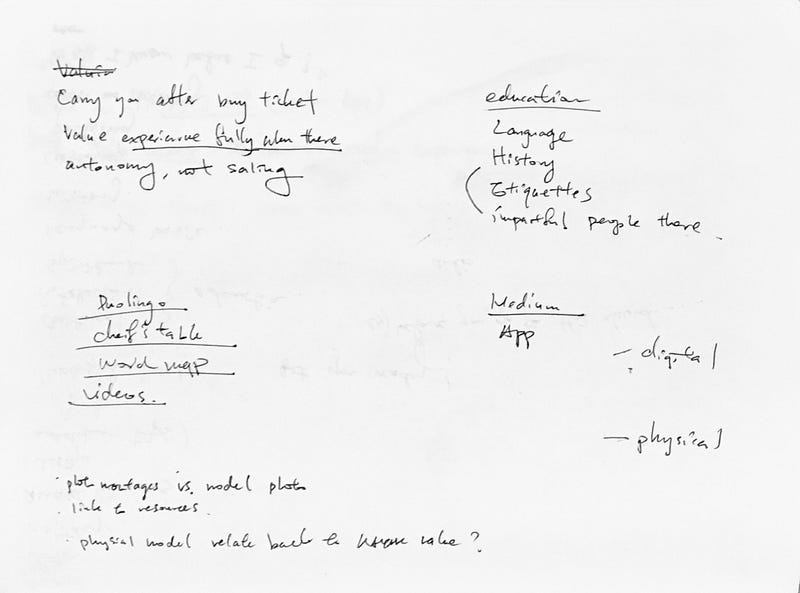 Carry you after buy ticket
Value experience fully when there
autonomy, not saling
education
Language
History
Etiquettes
impactful people there
Duolingo
chef's table
word map
videos.
Medium
App
— digital
— physical
· plot montages vs. model photo
· link to resources.
· physical model relate back to value ?